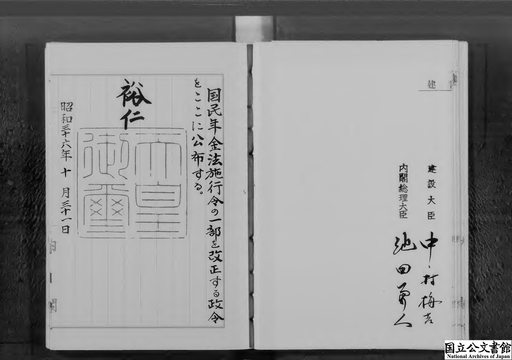 建設
建設大臣
中村梅吉
内閣総理大臣
池田勇人
国民年金法施行令の一部を改正する政令
をここに公布する。
裕仁
天皇
御璽
昭和三十六年十月三十一日
国立公文書館
National Archives of Japan